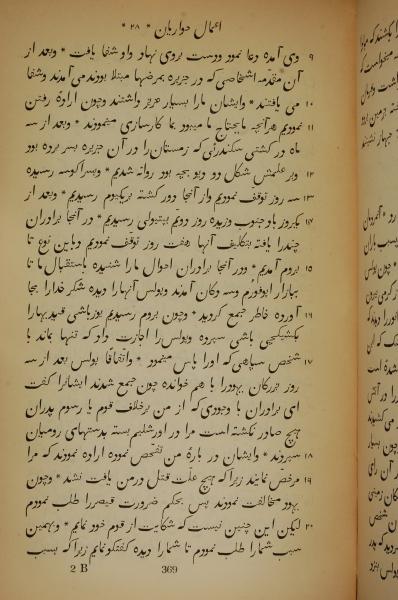 اعمال حواریان * ۲۸ *
وی آمده دعا نمود ودست بروی نهاد واو شفا یافت * وبعد از ۹
آن مقدّمه اشخاصی که در جزیره بمرضها مبتلا بودند می آمدند وشفا
می یافتند * وایشان مارا بسیار عزیز داشتند وچون ارادهٔ رفتن ۱۰
نمودیم هرآنچه مایحتاج ما میبود بما کارسازی مینمودند * وبعد از سه ۱۱
ماه در کشتی سکندرئی که زمستانرا در آن جزیره بسر برده بود
وبر علمش شکل دو دیو بچه بود روانه شدیم * وبسراکوسه رسیده ۱۲
سه روز توقف نمودیم واز آنجا دور گشته بریکیوم رسیدیم * وبعد از ۱۳
یکروز باد جنوب وزیده روز دویم بپتیولی رسیدیم * در آنجا برادران ۱۴
چندرا یافته بتکلیف آنها هفت روز توقف نمودیم وباین نوع تا
بروم آمدیم * ودر آنجا برادران احوال مارا شنیده باستقبال ما تا ۱۵
ببازار اپوفورم وسه دکان آمدند وپولس آنهارا دیده شکر خدارا بجا
آورده خاطر جمع گردید * وچون بروم رسیدیم یوزباشی قیدیهارا ۱۶
بکشیکچی باشی سپرده وپولس را اجازت داد که تنها بماند با
شخص سپاهی که اورا پاس مینمود * واتفاقا پولس بعد از سه ۱۷
روز بزرگان یهودرا با هم خوانده چون جمع شدند ایشانرا گفت
ای برادران با وجودی که از من برخلاف قوم یا رسوم پدران
هیچ صادر نگشته است مرا در اورشلیم بسته بدستهای رومیان
سپردند * وایشان در بارهٔ من تفحّص نموده اراده نمودند که مرا ۱۸
مرخّص نمایند زیرا که هیچ علّت قتل در من یافت نشد * وچون ۱۹
یهود مخالفت نمودند پس بحکم ضرورت قیصررا طلب نمودم
لیکن این چنین نیست که شکایت از قوم خود نمایم * وبهمین ۲۰
سبب شمارا طلب نمودم تا شمارا دیده گفتگو نمایم زیرا که بسبب
2 B 369